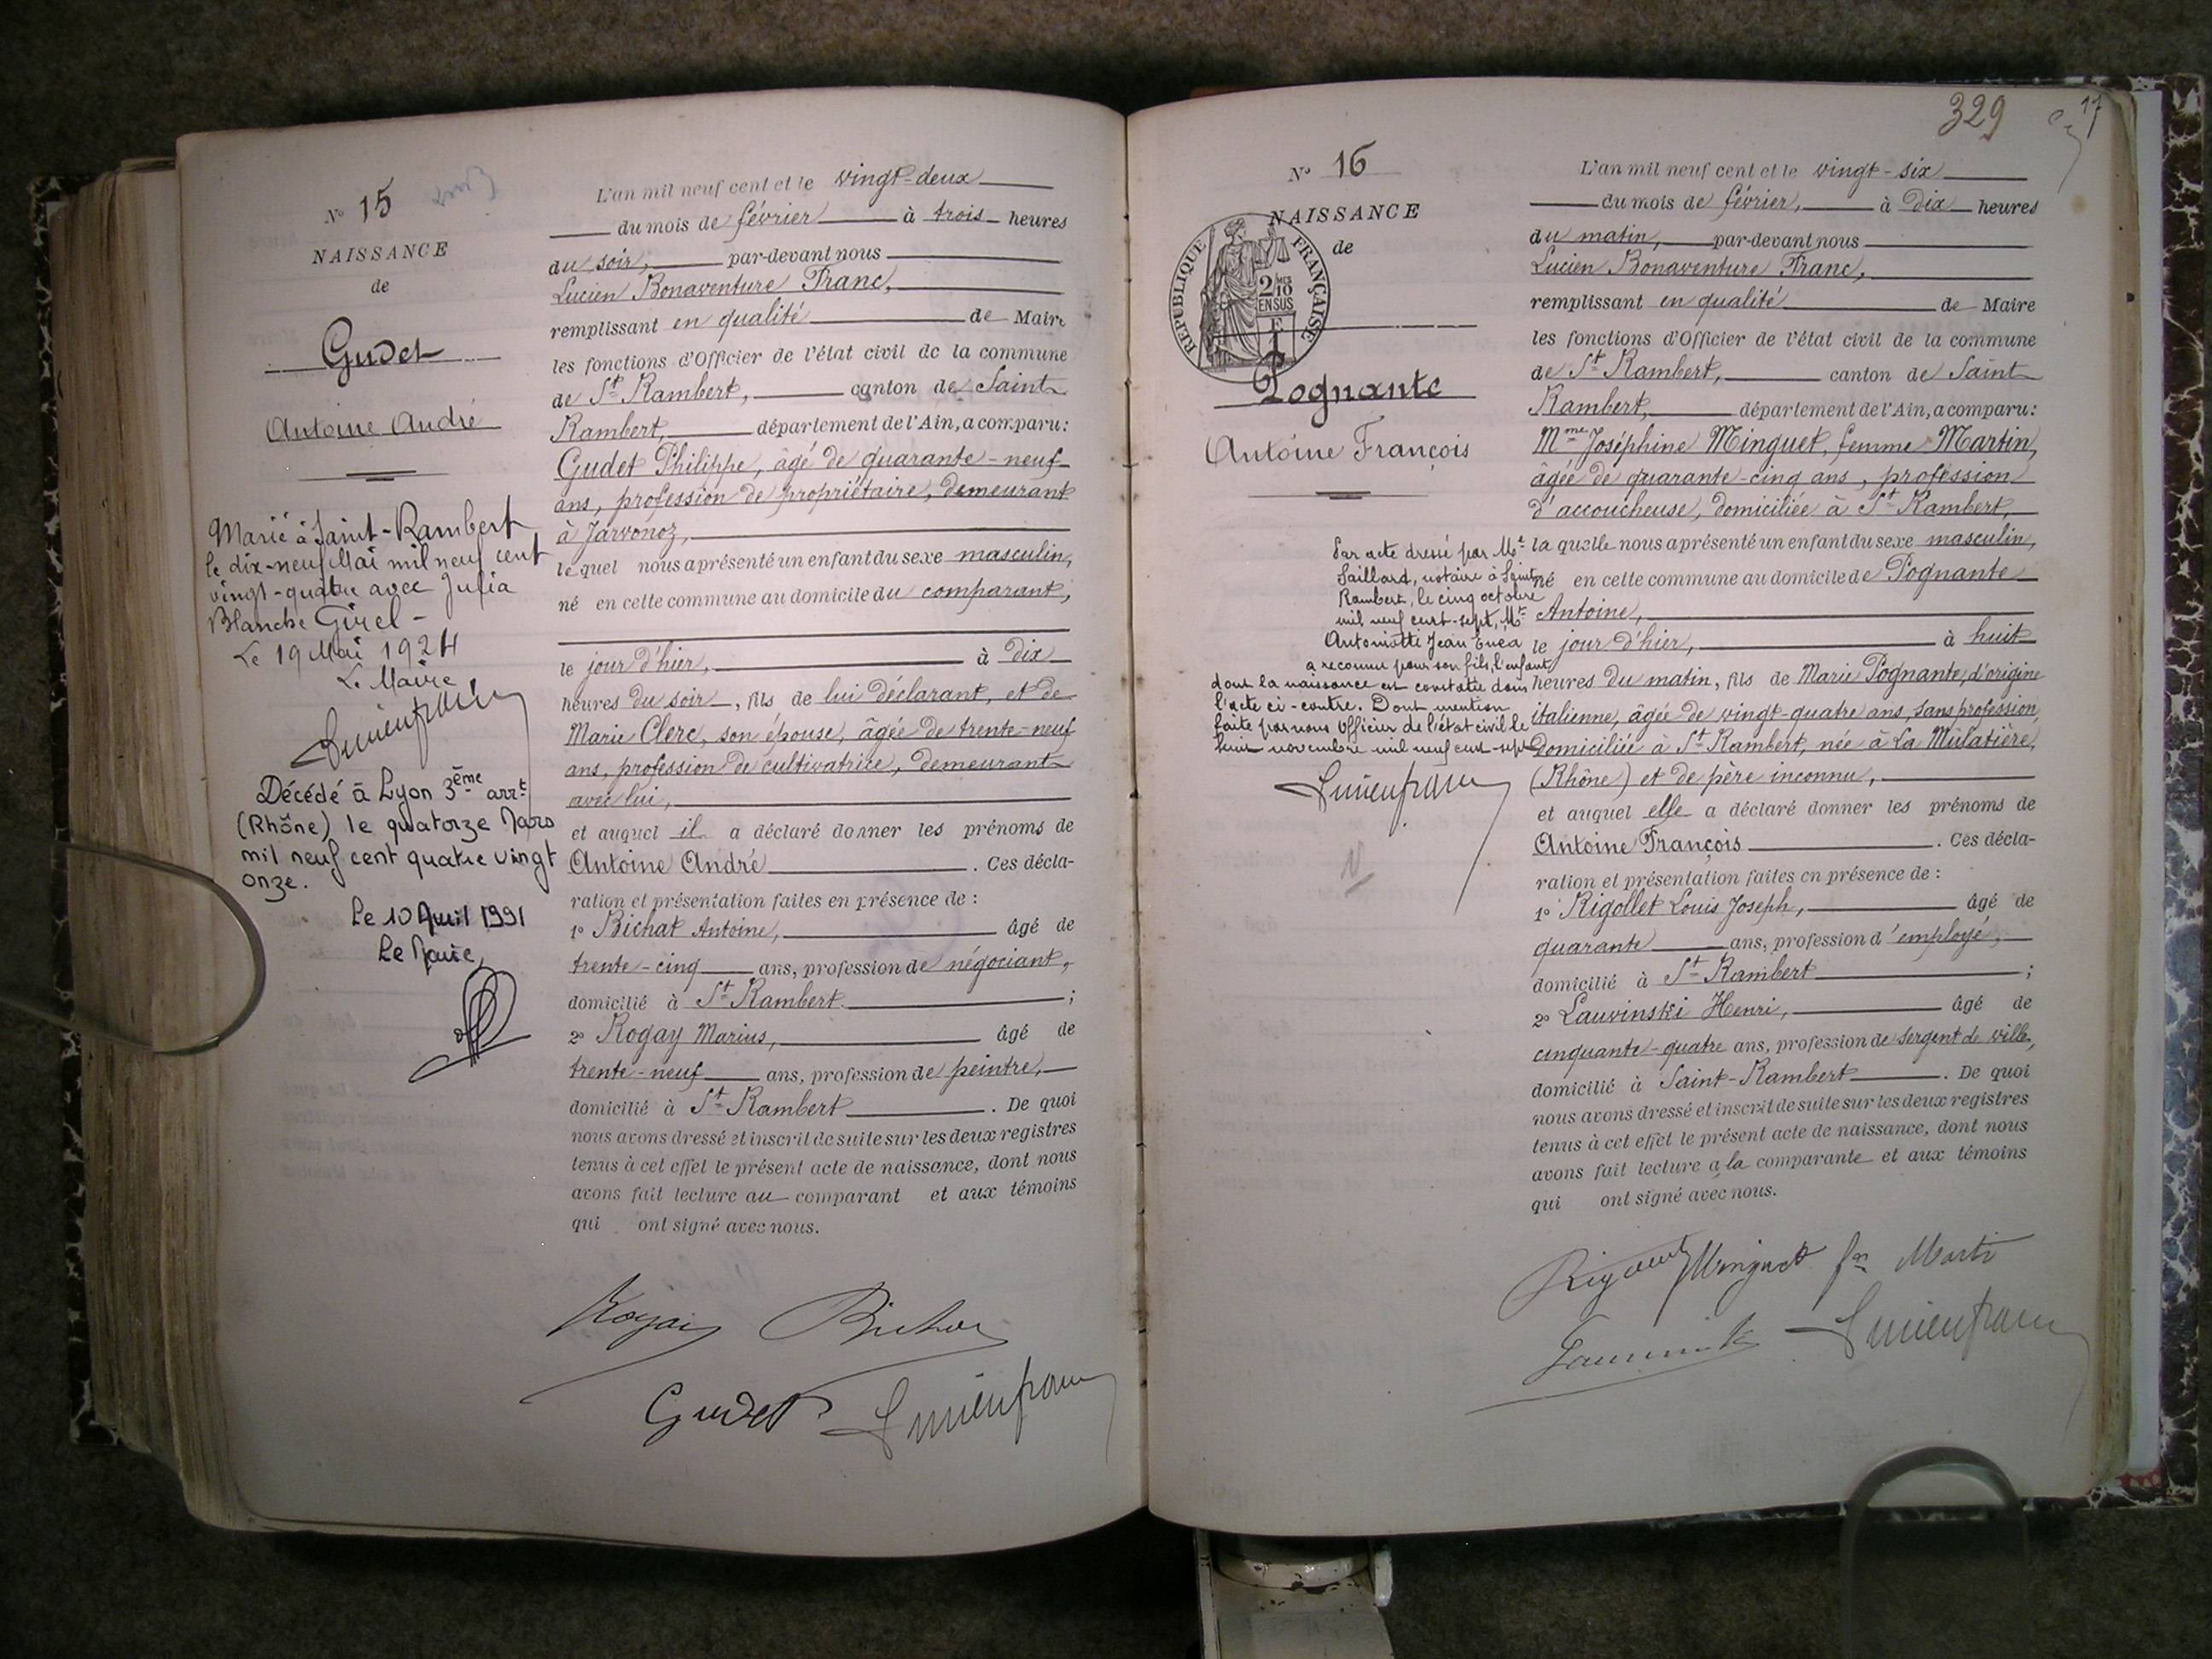 Nº 15
NAISSANCE
de
Gudet
Antoine André
Marié à Saint-Rambert
le dix-neuf Mai mil neuf cent
vingt-quatre avec Julia
Blanche Girel -
Le 19 Mai 1924
Le Maire
Lucien franc
Décédé à Lyon 3ème arrt
(Rhône) le quatorze Mars
mil neuf cent quatre vingt
onze.
Le 10 Avril 1991
Le Maire,
L'an mil neuf cent et le vingt-deux
du mois de février à trois heures
du soir, par-devant nous
Lucien Bonaventure Franc,
remplissant en qualité de Maire
les fonctions d'Officier de l'état civil de la commune
de St Rambert, canton de Saint
Rambert, département de l'Ain, a comparu:
Gudet Philippe, âgé de quarante-neuf
ans, profession de propriétaire, demeurant
à Javornoz,
lequel nous a présenté un enfant du sexe masculin,
né en cette commune au domicile du comparant,
le jour d'hier, à dix
heures du soir, fils de lui déclarant, et de
Marie Clerc, son épouse, âgée de trente-neuf
ans, profession de cultivatrice, demeurant
avec lui,
et auquel il a déclaré donner les prénoms de
Antoine André. Ces décla-
ration et présentation faites en présence de :
1º Bichat Antoine, âgé de
trente-cinq ans, profession de négociant,
domicilié à St Rambert ;
2º Rogay Marius, âgé de
trente-neuf ans, profession de peintre,
domicilié à St Rambert. De quoi
nous avons dressé et inscrit de suite sur les deux registres
tenus à cet effet le présent acte de naissance, dont nous
avons fait lecture au comparant et aux témoins
qui ont signé avec nous.
Rogay Bichat
Gudet Lucien franc
329
17
Nº 16
NAISSANCE
de
RÉPUBLIQUE FRANÇAISE
2/10 MES
EN SUS
Pognante
Antoine François
Par acte dressé par Mt
Saillard, notaire à Saint
Rambert, le cinq octobre
mil neuf cent-sept, Mt
Antoniotti Jean Enea
a reconnu pour son fils, l'enfant
dont la naissance est constatée dans
l'acte ci-contre. Dont mention
faite par nous Officier de l'état civil le
huit novembre mil neuf cent-sept
Lucien franc
L'an mil neuf cent et le vingt-six
du mois de février, à dix heures
du matin, par-devant nous
Lucien Bonaventure Franc,
remplissant en qualité de Maire
les fonctions d'Officier de l'état civil de la commune
de St Rambert, canton de Saint
Rambert, département de l'Ain, a comparu:
Mme Joséphine Minguet, femme Martin,
âgée de quarante-cinq ans, profession
d'accoucheuse, domiciliée à St Rambert,
la quelle nous a présenté un enfant du sexe masculin,
né en cette commune au domicile de Pognante
Antoine,
le jour d'hier, à huit
heures du matin, fils de Marie Pognante, d'origine
italienne, âgée de vingt-quatre ans, sans profession,
domiciliée à St Rambert, née à La Mulatière,
(Rhône) et de père inconnu,
et auquel elle a déclaré donner les prénoms de
Antoine François. Ces décla-
ration et présentation faites en présence de :
1º Rigollet Louis Joseph, âgé de
quarante ans, profession d'employé,
domicilié à St Rambert ;
2º Lauvinski Henri, âgé de
cinquante-quatre ans, profession de sergent de ville,
domicilié à Saint-Rambert. De quoi
nous avons dressé et inscrit de suite sur les deux registres
tenus à cet effet le présent acte de naissance, dont nous
avons fait lecture à la comparante et aux témoins
qui ont signé avec nous.
Minguet fe Martin
Lucien franc